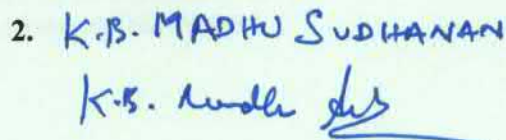 2. K.B. MADHU SUDHANAN
K.B.